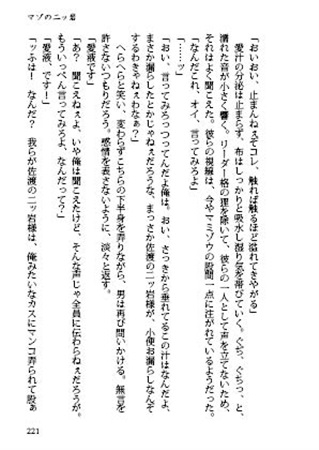 マゾの二ッ岩
「おいおい、止まんねぇぞコレ、触れれば触るほど溢れてきやがる」
愛汁の分泌は止まらず、布はしっかりと吸水し湿り気を帯びていく。ぐち、ぐちっ、と、
濡れた音が小さく響く。リーダー格の狸を除いて、彼らの一人として声を立てないため、
それはよく聞こえた。彼らの視線は、今やマミゾウの股間一点に注がれているようだ。
「なんだこれ、オイ、言ってみろよ」
「……ッ」
「おい、言ってみろっつってんだよ俺は。おい、さっきから垂れてるこの汁はなんだよ、
まさか漏らしたとかじゃねぇだろうな、まっさか佐渡の二ッ岩様が、小便お漏らしなんぞ
するわきゃねぇわなぁ？」
へらへらと笑い、変わらずこちらの下半身を弄りながら、男は再び問いかける。無言を
許さないつもりだろう。感情を表さないように、淡々と返す。
「愛液です」
「あ？　聞こえねぇよ、いや俺は聞こえたけど、そんな声じゃ全員に伝わらねぇだろうが。
もういっぺん言ってみろよ、なんだって？」
「愛液、です！」
「ッふは！　なんだ？　我らが佐渡の二ッ岩様は、俺みたいなカスにマンコ弄られて股ぁ
221